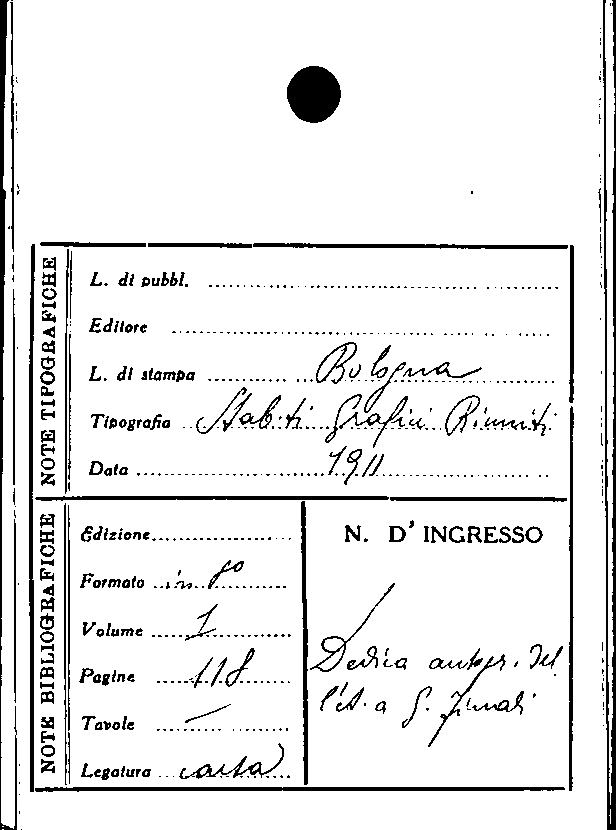 NOTE TIPOGRAFICHE
L. di pubbl.
Editore
L. di stampa Bologna
Tipografia Stab.ti Grafici Riuniti
Data 1911
NOTE BIBLIOGRAFICHE
Edizione
Formato in 8º
Volume 1
Pagine 118
Tavole —
Legatura carta
N. D'INGRESSO
Dedica autogr. del
l'A. a G.